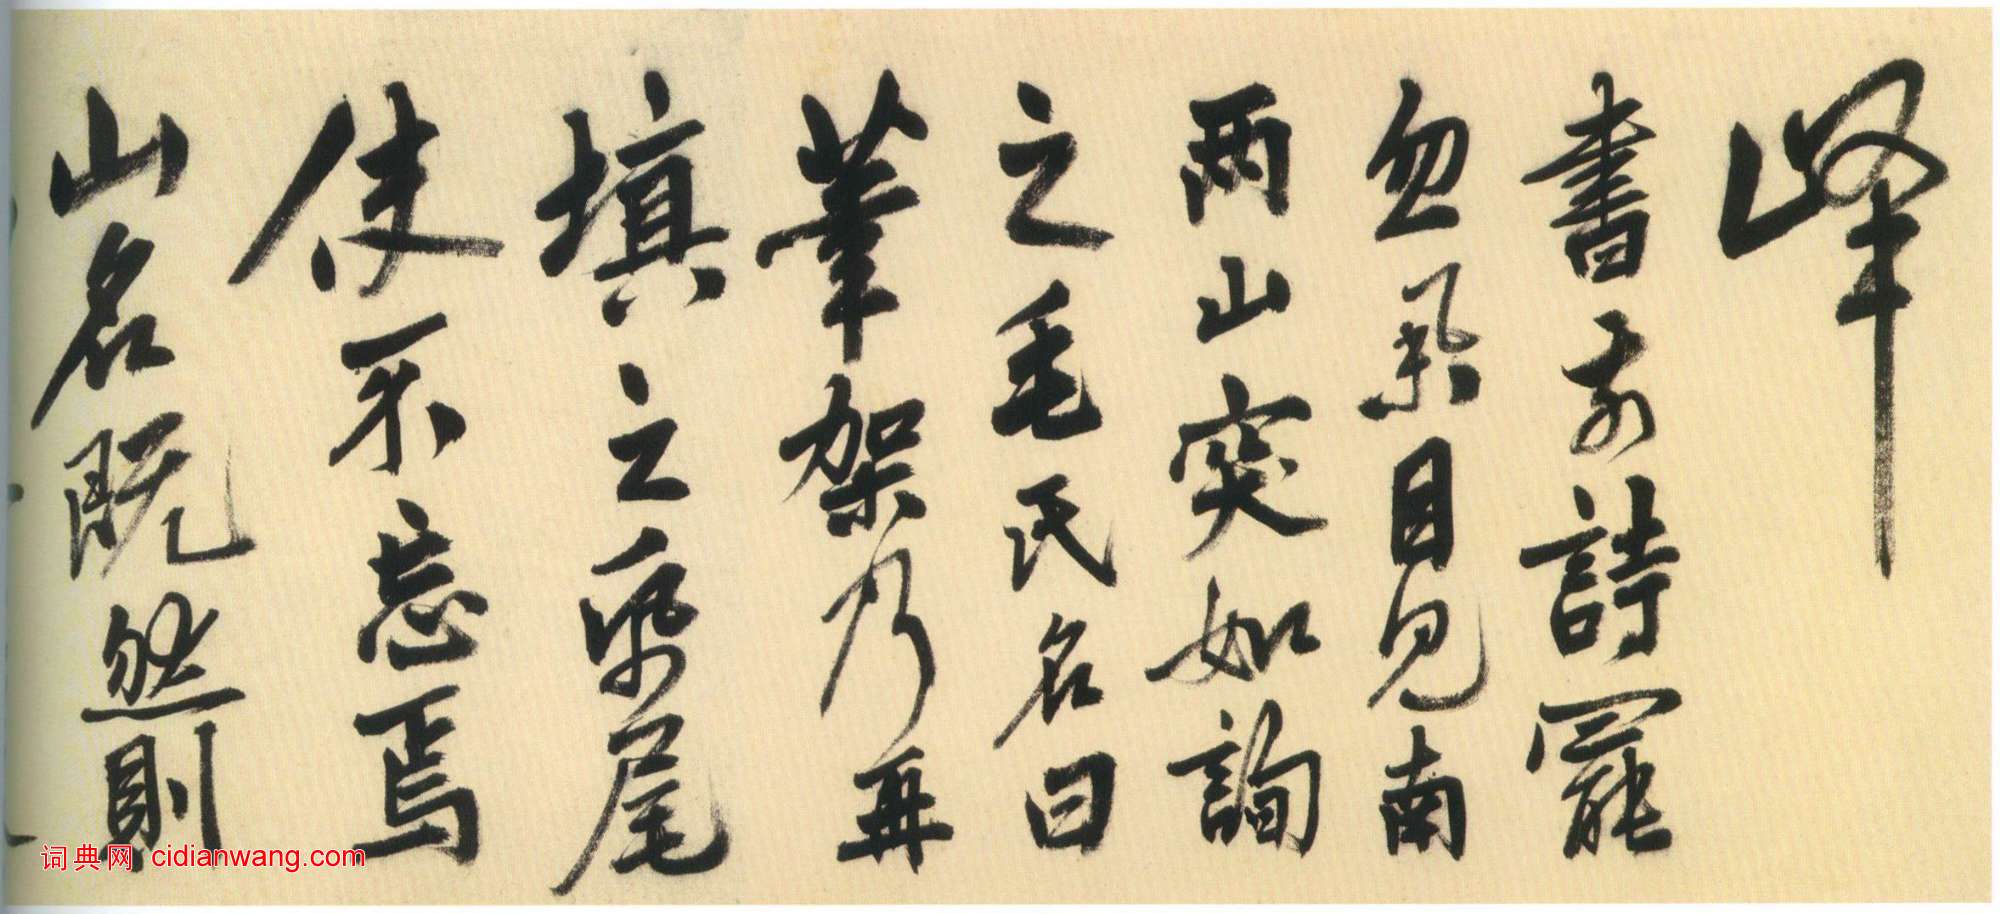 峰
書前詩罷
忽舉目見南
兩山突如詢
之毛氏名曰
筆架乃再
填之帋尾
使不忘焉
山名既然則
词典网 cidianwang.com